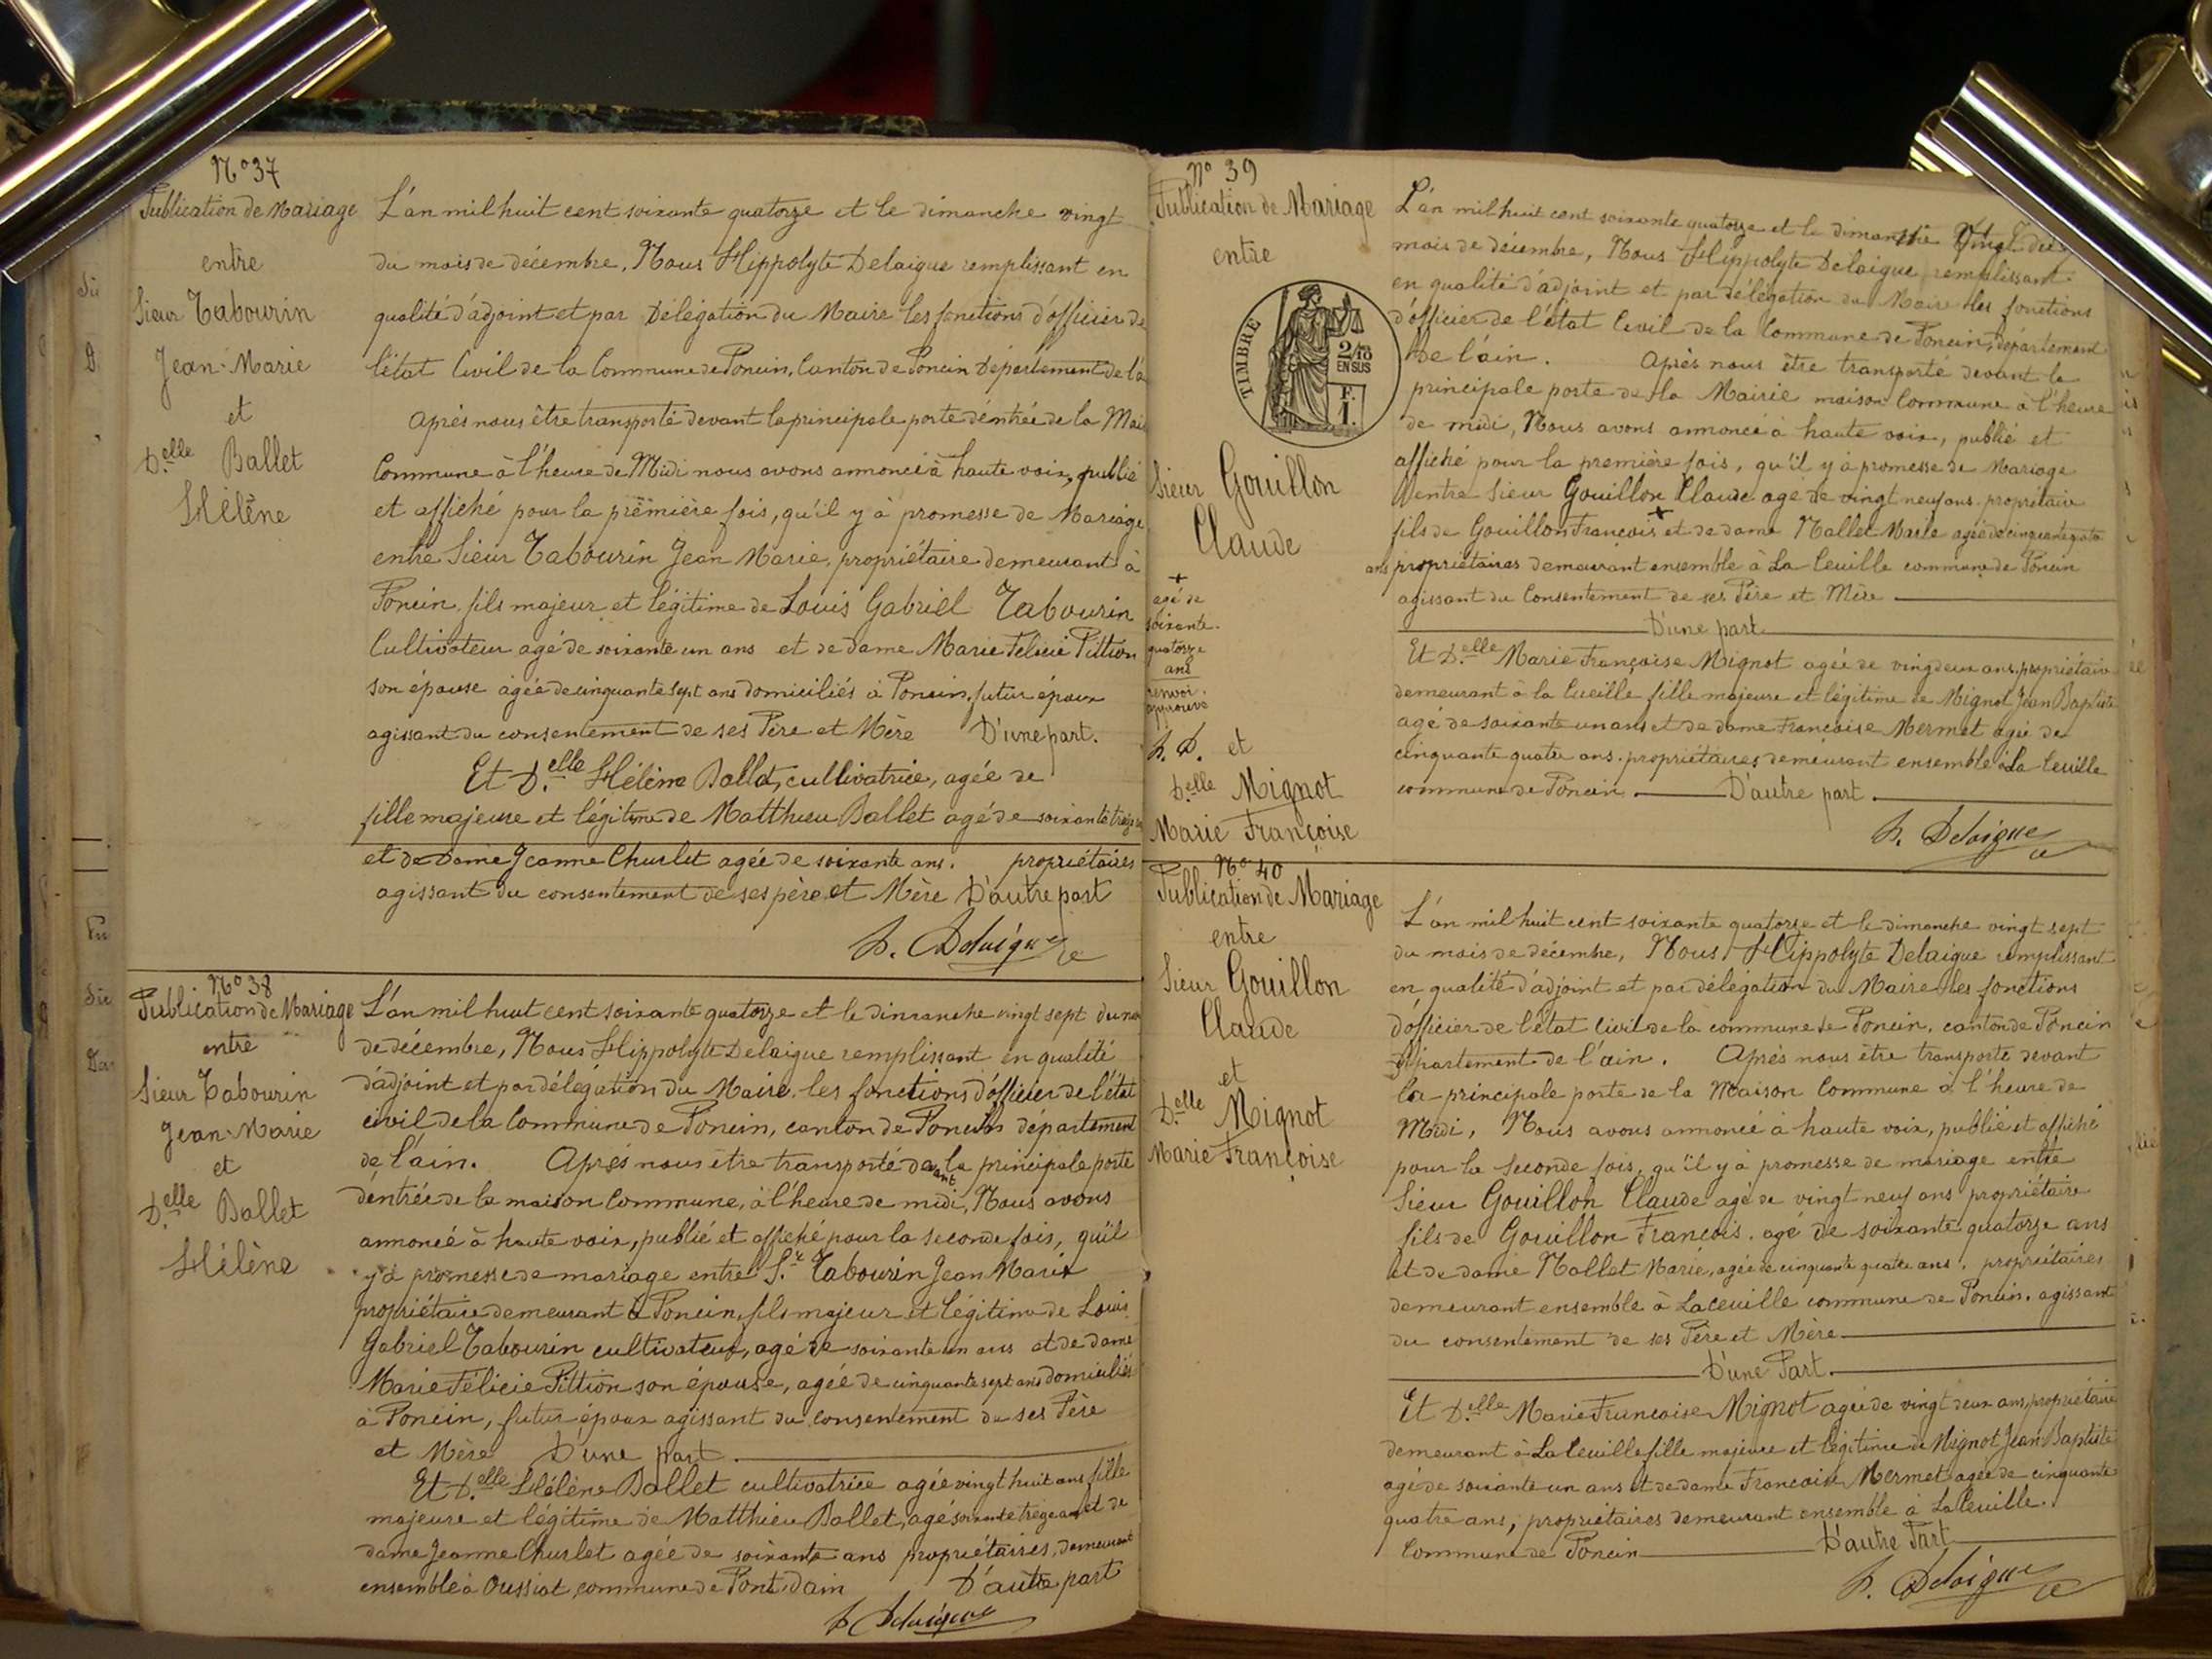 N° 37
Publication de Mariage
entre
Sieur Tabourin
Jean-Marie
et
D.elle Ballet
Hélène
L'an mil huit cent soixante quatorze et le dimanche vingt
du mois de décembre, Nous Hippolyte Delaigue remplissant en
qualité d'adjoint et par Délégation du Maire les fonctions d'officier de
l'état Civil de la Commune de Poncin, Canton de Poncin Département de l'a
Après nous être transporté devant la principale porte d'entrée de la Mai
Commune à l'heure de Midi nous avons annoncé à haute voix, publié
et affiché pour la première fois, qu'il y à promesse de Mariage
entre Sieur Tabourin Jean Marie, propriétaire demeurant à
Poncin, fils majeur et légitime de Louis Gabriel Tabourin
Cultivateur agé de soixante un ans et de Dame Marie Félicie Pittion
son épouse agée de cinquante sept ans domiciliés à Poncin, futur époux
agissant du consentement de ses Père et Mère D'une part.
Et D.elle Hélène Ballet, cultivatrice, agée de
fille majeure et légitime de Matthieu Ballet agé de soixante treize
et de Dame Jeanne Churlet agée de soixante ans. propriétaires
agissant du consentement de ses père et Mère D'autre part
h. Delaigue
N° 38
Publication de Mariage
entre
Sieur Tabourin
Jean-Marie
et
D.elle Ballet
Hélène
L'an mil huit cent soixante quatorze et le dimanche vingt sept du mo
de décembre, Nous Hippolyte Delaigue remplissant en qualité
d'adjoint et par délégation du Maire les fonctions d'officier de l'état
civil de la Commune de Poncin, canton de Poncin département
de l'ain. Après nous être transporté devant la principale porte
d'entrée de la maison Commune, à l'heure de midi, Nous avons
annoncé à haute voix, publié et affiché pour la seconde fois, qu'il
y à promesse de mariage entre S.r Tabourin Jean Marie
propriétaire demeurant à Poncin, fils majeur et légitime de Louis
Gabriel Tabourin cultivateur, agé de soixante un ans et de dame
Marie Félicie Pittion son épouse, agée de cinquante sept ans domiciliés
à Poncin, futur époux agissant du consentement de ses Père
et Mère D'une part.
Et D.elle Hélène Ballet cultivatrice agée vingt huit ans fille
majeure et légitime de Matthieu Ballet, agé soixante treize ans et de
dame Jeanne Churlet agée de soixante ans propriétaires, demeurant
ensemble à Oussiat, commune de Pont-d'ain D'autre part
h Delaigue
N° 39
Publication de Mariage
entre
TIMBRE
2/10
EN SUS
F.
1.
Sieur Gouillon
Claude
+
agé de
soixante-
quatorze
ans
renvoi
approuvé
h. D. et
D.elle Mignot
Marie Françoise
L'an mil huit cent soixante quatorze et le dimanche vingt du
mois de décembre, Nous Hippolyte Delaigue remplissant
en qualité d'adjoint et par délégation du Maire les fonctions
d'officier de l'état Civil de la Commune de Poncin, département
de l'ain. Après nous être transporté devant la
principale porte de la Mairie maison Commune à l'heure
de midi, Nous avons annoncé à haute voix, publié et
affiché pour la première fois, qu'il y à promesse de Mariage
entre Sieur Gouillon Claude agé de vingt neuf ans propriétaire
fils de Gouillon François + et de dame Mallet Marie agée de cinquante quatre
ans propriétaires demeurant ensemble à La Ceuille commune de Poncin
agissant du Consentement de ses Père et Mère
D'une part
Et D.elle Marie Françoise Mignot agée de vingdeux ans, propriétaire
demeurant à la Cueille fille majeure et légitime de Mignot Jean Baptiste
agé de soixante un ans et de dame Françoise Mermet agée de
cinquante quatre ans. propriétaires demeurant ensemble à La Ceuille
commune de Poncin D'autre part
h. Delaigue
N° 40
Publication de Mariage
entre
Sieur Gouillon
Claude
et
D.elle Mignot
Marie Françoise
L'an mil huit cent soixante quatorze et le dimanche vingt sept
du mois de décembre, Nous Hippolyte Delaigue remplissant
en qualité d'adjoint et par délégation du Maire les fonctions
d'officier de l'état civil de la commune de Poncin, canton de Poncin
département de l'ain. Après nous être transporté devant
la principale porte de la Maison Commune à l'heure de
Midi, Nous avons annoncé à haute voix, publié et affiché
pour la Seconde fois, qu'il y à promesse de mariage entre
Sieur Gouillon Claude agé de vingt neuf ans propriétaire
fils de Gouillon François. agé de soixante quatorze ans
et de dame Mallet Marie, agée de cinquante quatre ans, propriétaires
demeurant ensemble à La Ceuille commune de Poncin. agissant
du consentement de ses Père et Mère
D'une Part.
Et D.elle Marie Françoise Mignot agée de vingt deux ans, propriétaire
demeurant à La Ceuille fille majeure et légitime de Mignot Jean Baptiste
agé de soixante un ans et de dame Françoise Mermet agée de cinquante
quatre ans, propriétaires demeurant ensemble à La Ceuille.
Commune de Poncin D'autre Part
h. Delaigue